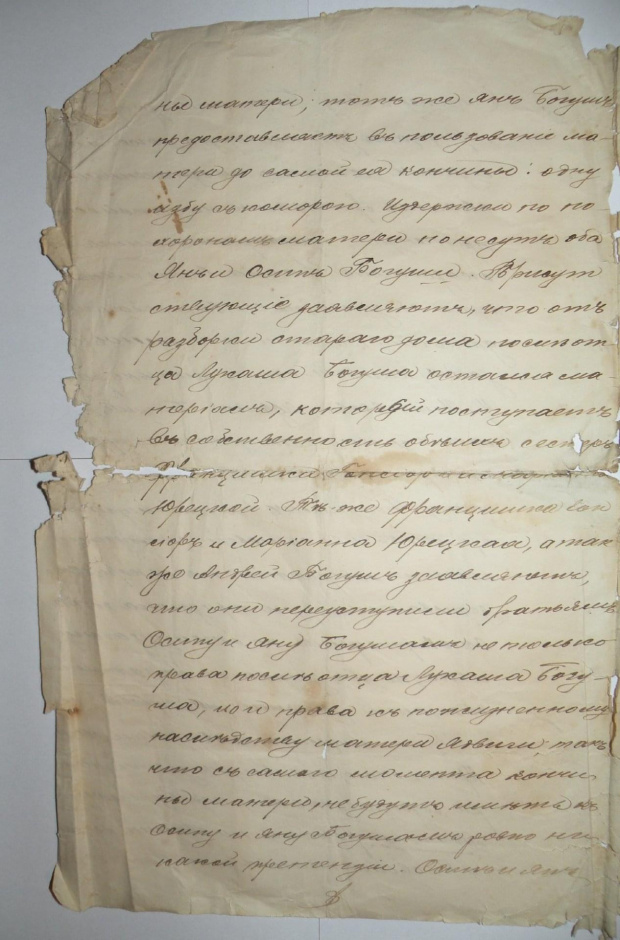 ны матери; тотъ же Янъ Богушъ
предоставляетъ въ пользованіе ма-
тери до самой ея кончины: одну
избу съ коморою. Издержки по по-
хоронамъ матери понесутъ оба
Янъ и Осипъ Богуши. Присут
ствующіе заявляютъ, что отъ
разборки стараго дома послѣ от-
ца Лукаша Богуша остался ма-
теріалъ, который поступаетъ
въ собственность обѣихъ сестръ
Францишки и
Юрецкой. Тѣ же Францишка Гон
сіоръ и Маріанна Юрецкая, а так
же Андрей Богушъ заявляютъ,
что они переуступили братьямъ
Осипу и Яну Богушамъ не только
права послѣ отца Лукаша Богу-
ша, но и права къ пожизненному
наслѣдству матери Ядвиги, такъ
что съ самого момента кончи-
ны матери, не будутъ имѣть къ
Осипу и Яну Богушамъ ровно ни-
какой претензіи. Осипъ и Янъ